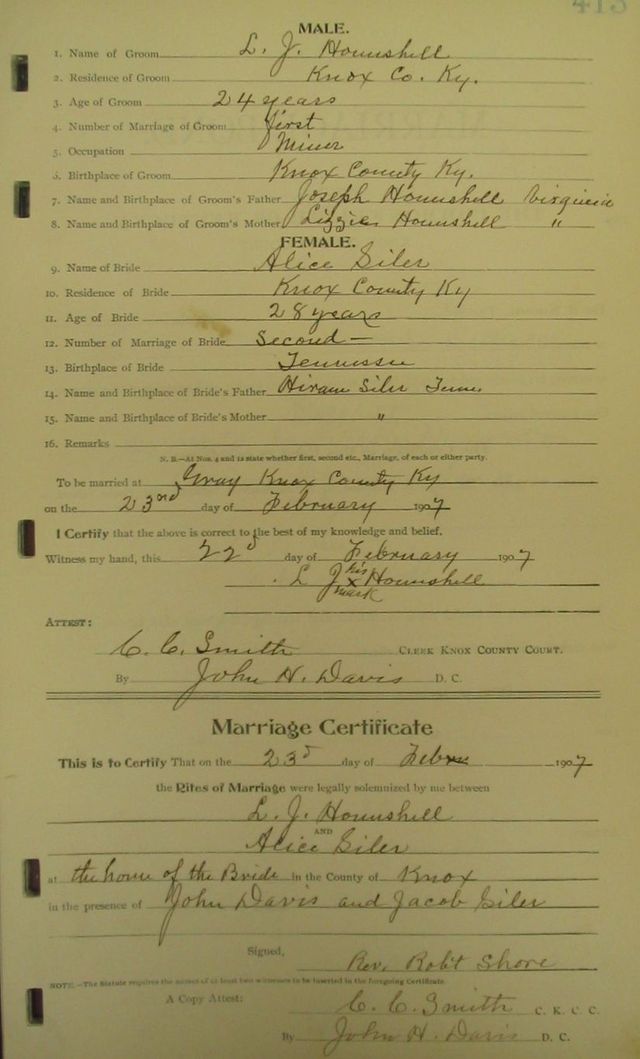 413
MALE.
1. Name of Groom L. J. Hounshell
2. Residence of Groom Knox Co. Ky.
3. Age of Groom 24 years
4. Number of Marriage of Groom first
5. Occupation Miner
6. Birthplace of Groom Knox County Ky.
7. Name and Birthplace of Groom's Father Joseph Hounshell Virginia
8. Name and Birthplace of Groom's Mother Lizzie Hounshell "
FEMALE.
9. Name of Bride Alice Siler
10. Residence of Bride Knox County Ky
11. Age of Bride 28 years
12. Number of Marriage of Bride Second —
13. Birthplace of Bride Tennessee
14. Name and Birthplace of Bride's Father Hiram Siler Tenn.
15. Name and Birthplace of Bride's Mother "
16. Remarks
N. B.—At Nos. 4 and 12 state whether first, second etc., Marriage, of each or either party.
To be married at Gray Knox County Ky
on the 23rd day of February 1907
I Certify that the above is correct to the best of my knowledge and belief.
Witness my hand, this 22d day of February 1907
L J his x mark Hounshell
ATTEST:
C. C. Smith CLERK KNOX COUNTY COURT.
By John H. Davis D. C.
Marriage Certificate
This is to Certify That on the 23d day of Febru 1907
the Rites of Marriage were legally solemnized by me between
L. J. Hounshell
AND
Alice Siler
at the home of the Bride in the County of Knox
in the presence of John Davis and Jacob Siler
Signed,
Rev. Robt Shore
NOTE.—The Statute requires the names of at least two witnesses to be inserted in the foregoing Certificate.
A Copy Attest:
C. C. Smith C. K. C. C.
By John H. Davis D. C.